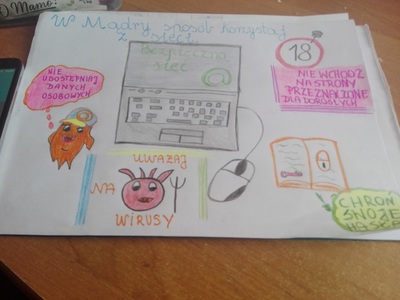 O Mamo!
W Mądry sposób korzystaj
z sieci
bezpieczna
sieć
@
18
NIE WCHODŹ
NA STRONY
PRZEZNACZONE
DLA DOROSŁYCH
NIE
UDOSTĘPNIAJ
DANYCH
OSOBOWYCH
UWAŻAJ
NA
WIRUSY
CHROŃ
SWOJE